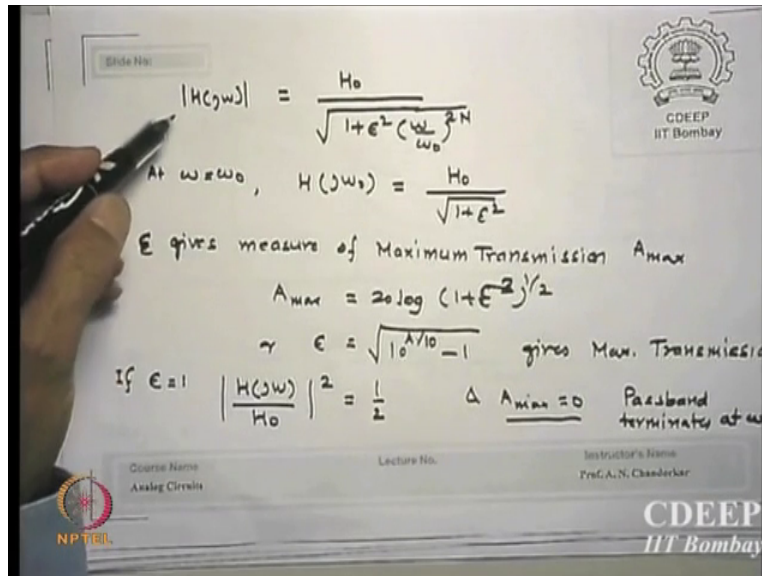 Slide No:
CDEEP
IIT Bombay
|H(jω)| = H0 / √(1+ε² (ω/ω0)^2N)
At ω=ω0, H(jω0) = H0 / √(1+ε²)
ε gives measure of Maximum Transmission Amax
Amax = 20 log (1+ε²)^1/2
or ε = √(10^A/10 − 1) gives Max. Transmissio
If ε=1 |H(jω)/H0|² = 1/2 Δ Amin = 0 Passband
terminates at ω
Course Name
Analog Circuits
Lecture No.
Instructor's Name
Prof. A. N. Chandorkar
NPTEL
CDEEP
IIT Bombay